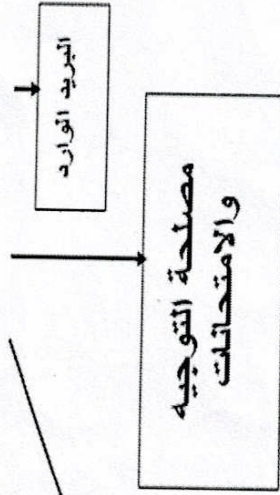 البريد الوارد
مصلحة التوجيه
والامتحانات